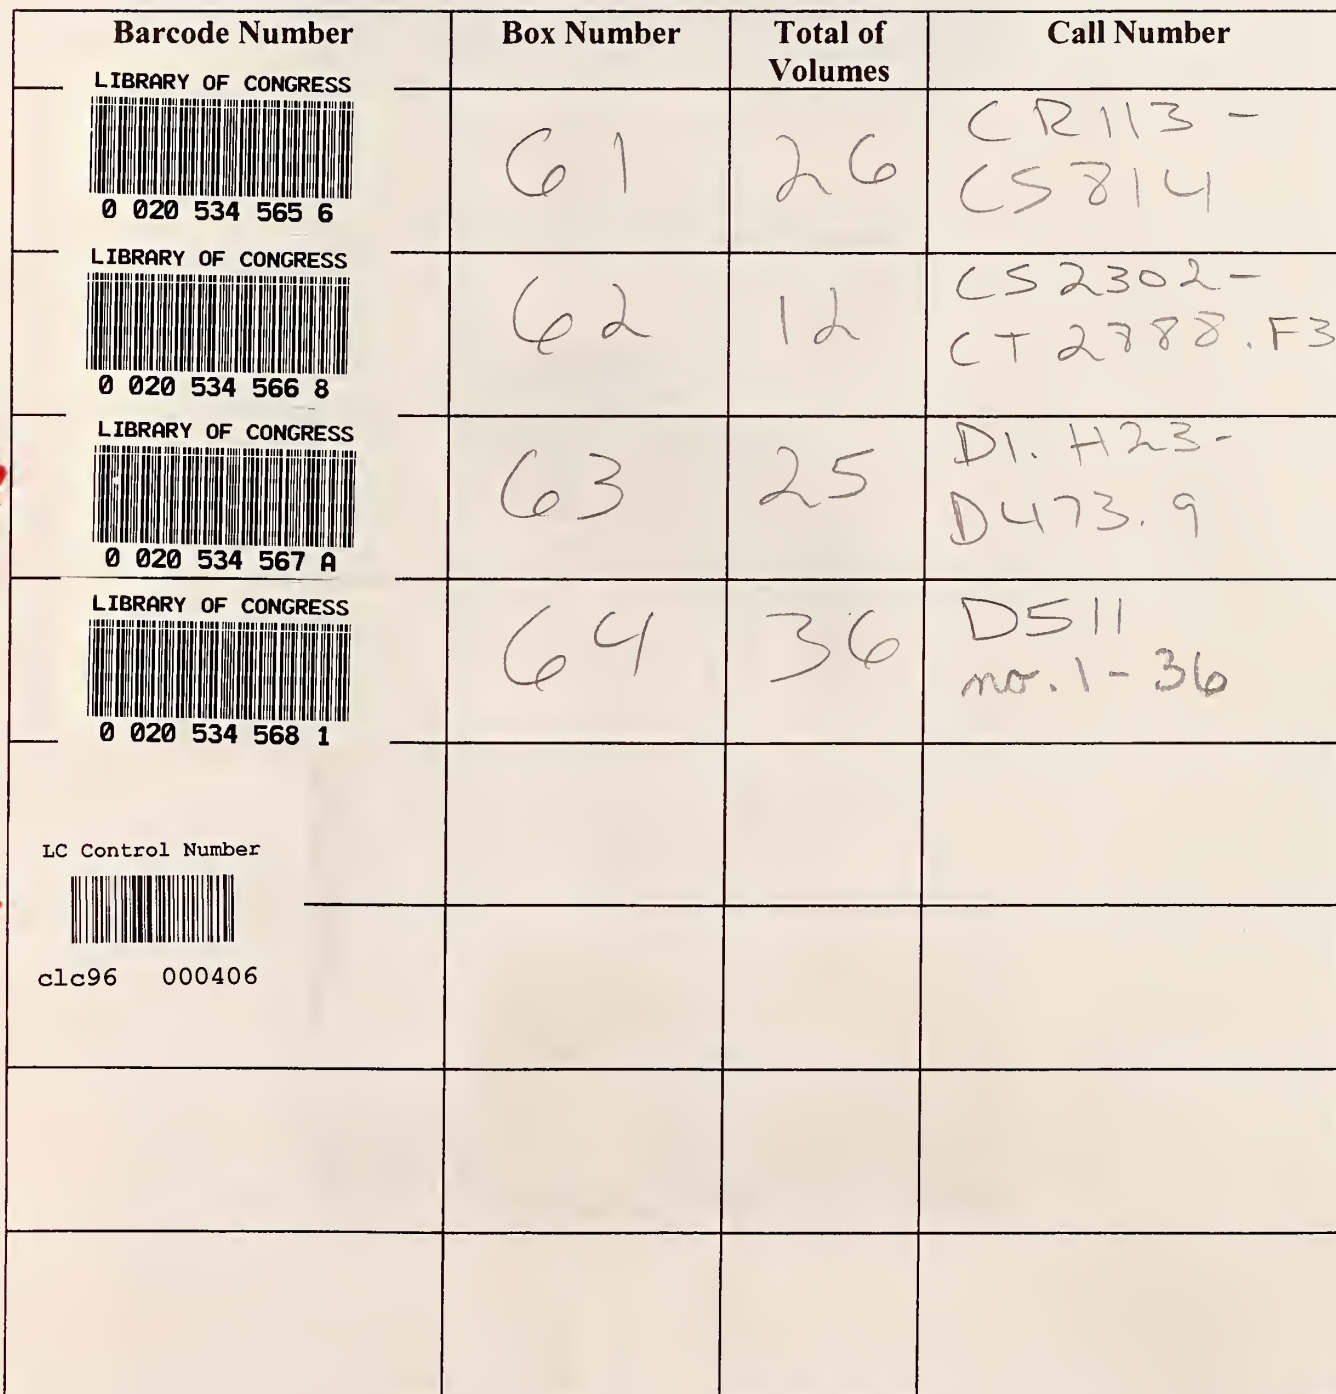 Barcode Number Box Number Total of Volumes Call Number
LIBRARY OF CONGRESS
0 020 534 565 6
61 26 CR113 -
CS814
LIBRARY OF CONGRESS
0 020 534 566 8
62 12 CS2302 -
CT 2888.F3
LIBRARY OF CONGRESS
0 020 534 567 A
63 25 D1.H23 -
D473.9
LIBRARY OF CONGRESS
0 020 534 568 1
64 36 D511
no. 1 - 36
LC Control Number
clc96 000406